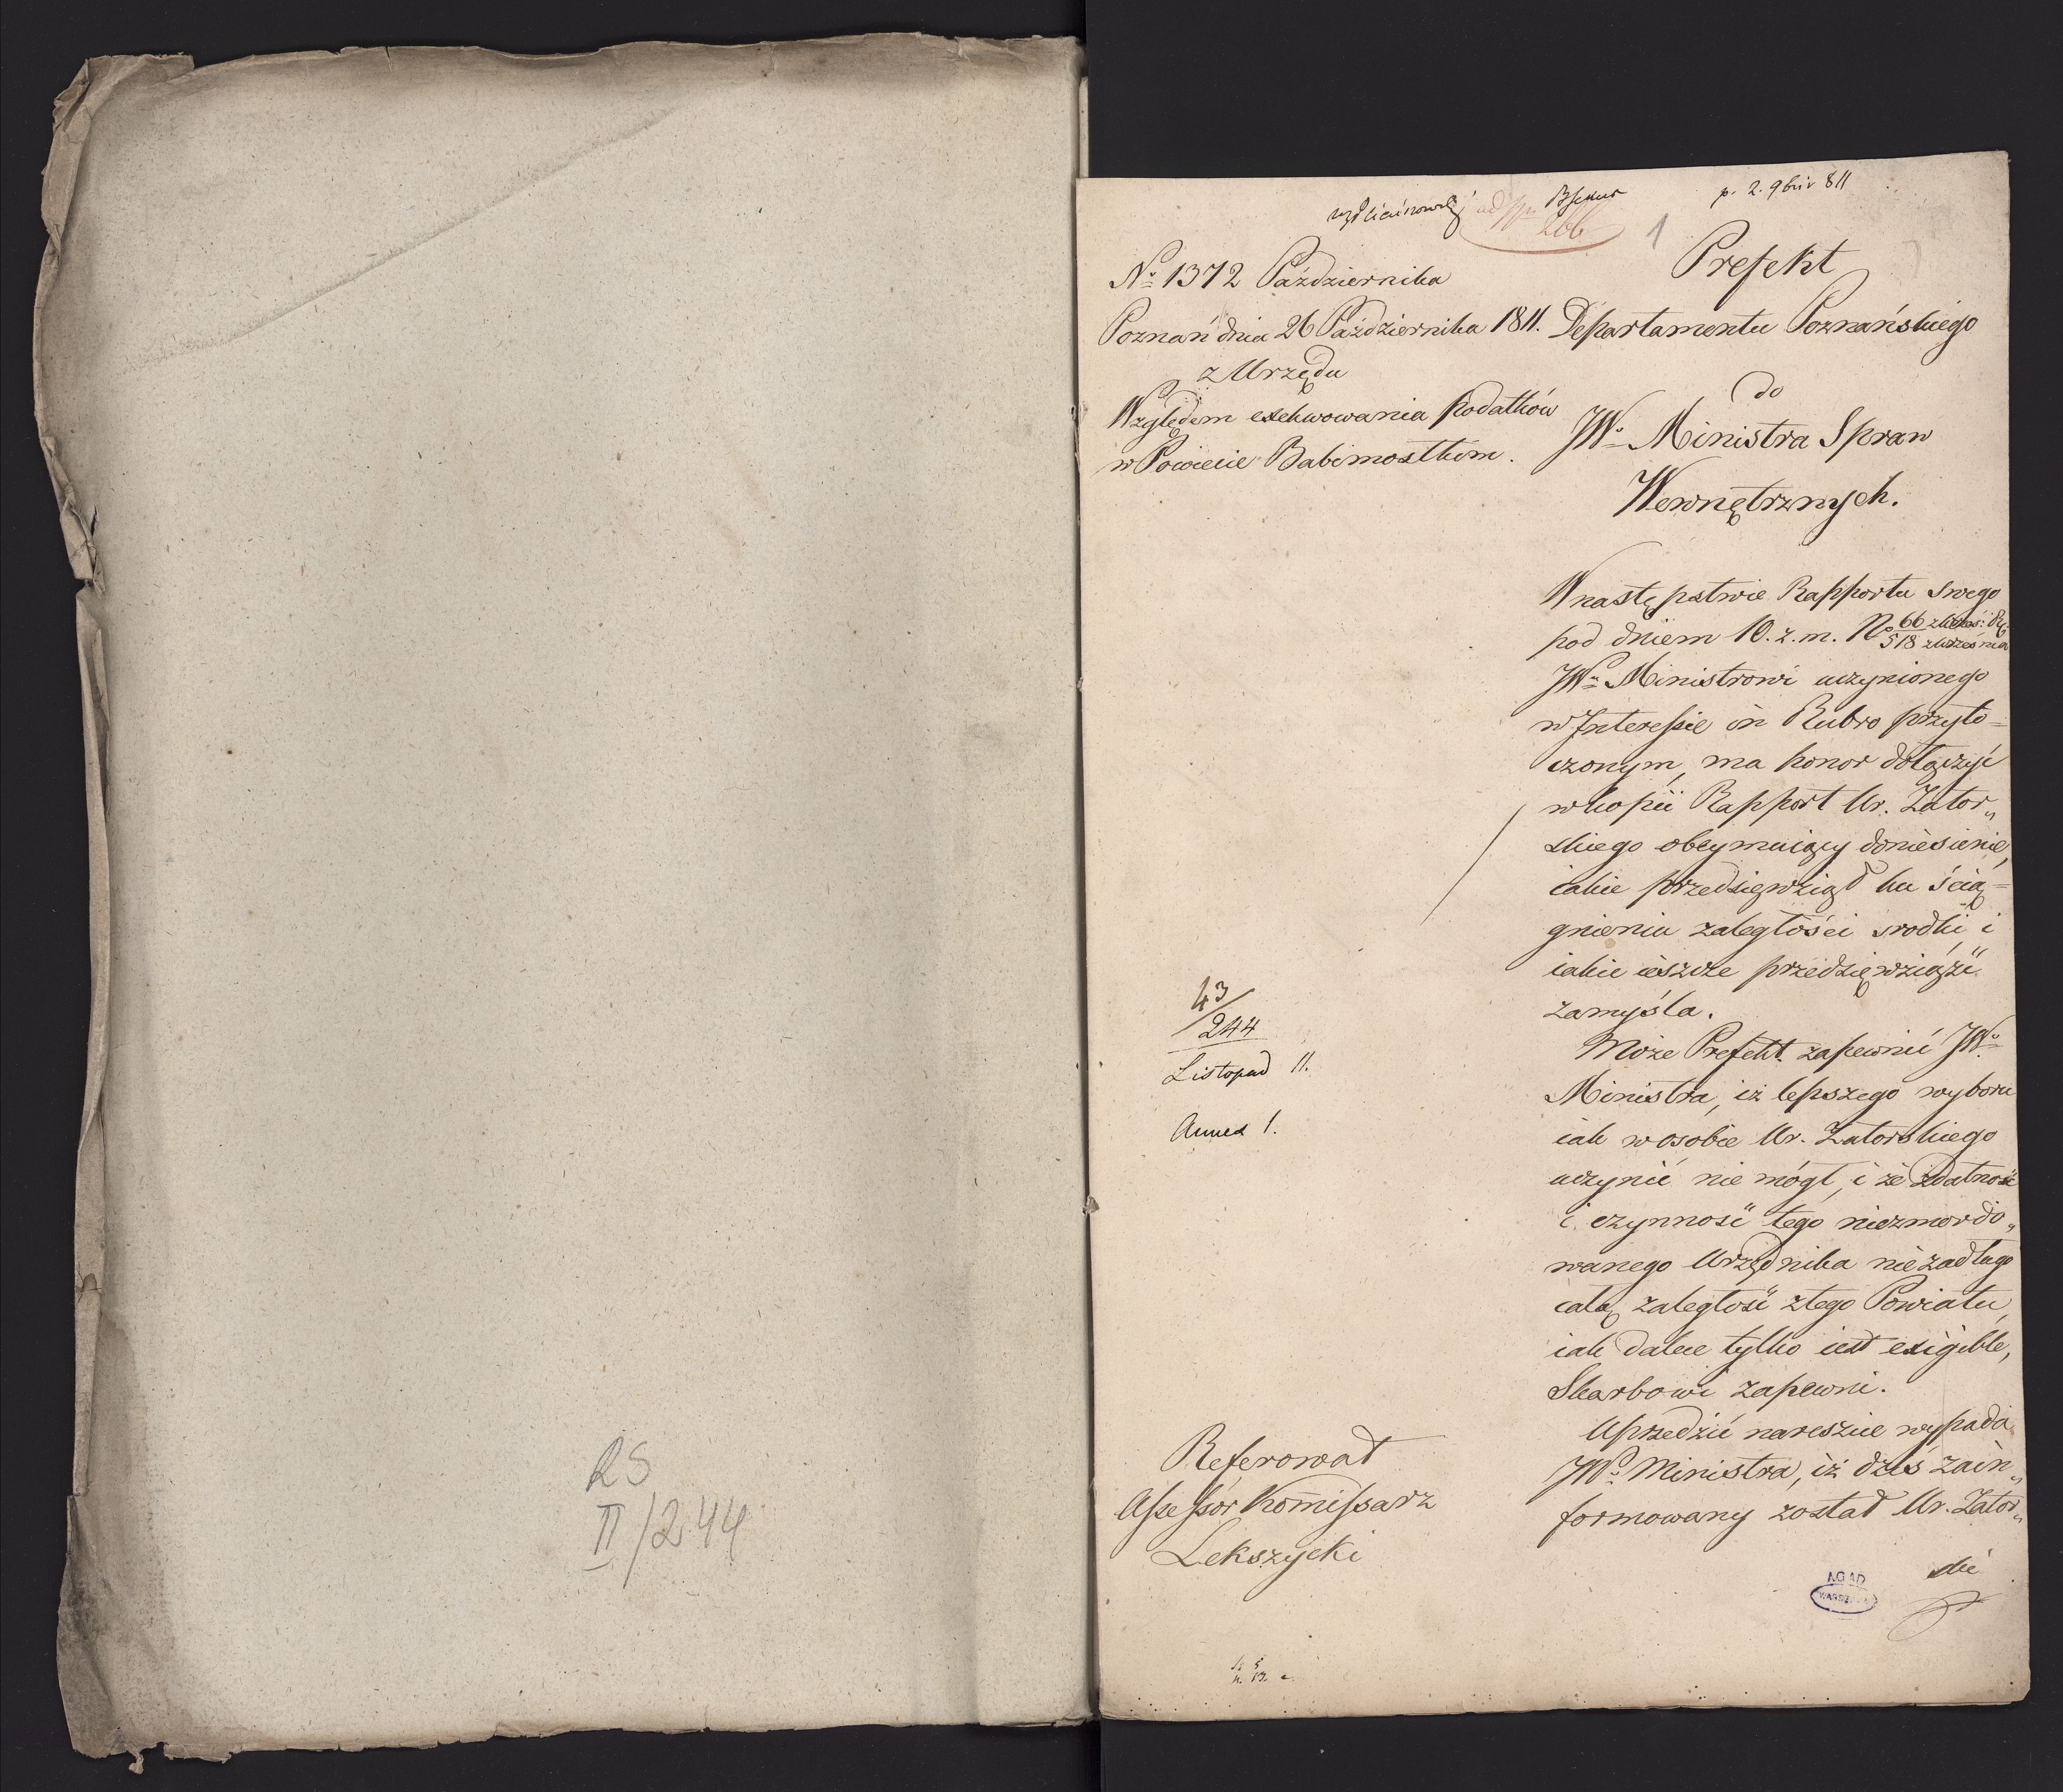 RS
II/244
p. 2. 9bris 811
266
1
No 1372 Października
Poznań dnia 26 Października 1811.
z Urzędu
Względem exekwowania podatków
w Powiecie Babimostkim.
Prefekt
Departamentu Poznańskiego
do
JWo Ministra Spraw
Wewnętrznych.
W następstwie Rapportu swego
pod dniem 10. z. m. No 66
518 z Września
JWu Ministrowi uczynionego
w Interessie in Rubro przyto=
czonym, ma honor dołączyć
w kopii Rapport Ur. Zator„
skiego obeymuiący doniesienie,
iakie przedsięwziął ku ścią=
gnieniu zaległości srodki i
iakie ieszcze przedsięwziąść
zamyśla.
Może Prefekt zapewnić JWo
Ministra, iż lepszego wyboru
iak w osobie Ur. Zatorskiego
uczynić nie mógł, i że zdatność
i czynność tego niezmordo„
wanego Urzędnika niezadługo
całą zaległość z tego Powiatu,
iak dalece tylko iest exigible,
Skarbowi zapewni.
Uprzedzić nareszcie wypada
JWo Ministra, iż dziś zain„
formowany został Ur. Zator„
ski
43/244
Listopad 11.
Annex 1.
Referował
Assessor Kommissarz
Lekszycki
AGAD
WARSZAWA